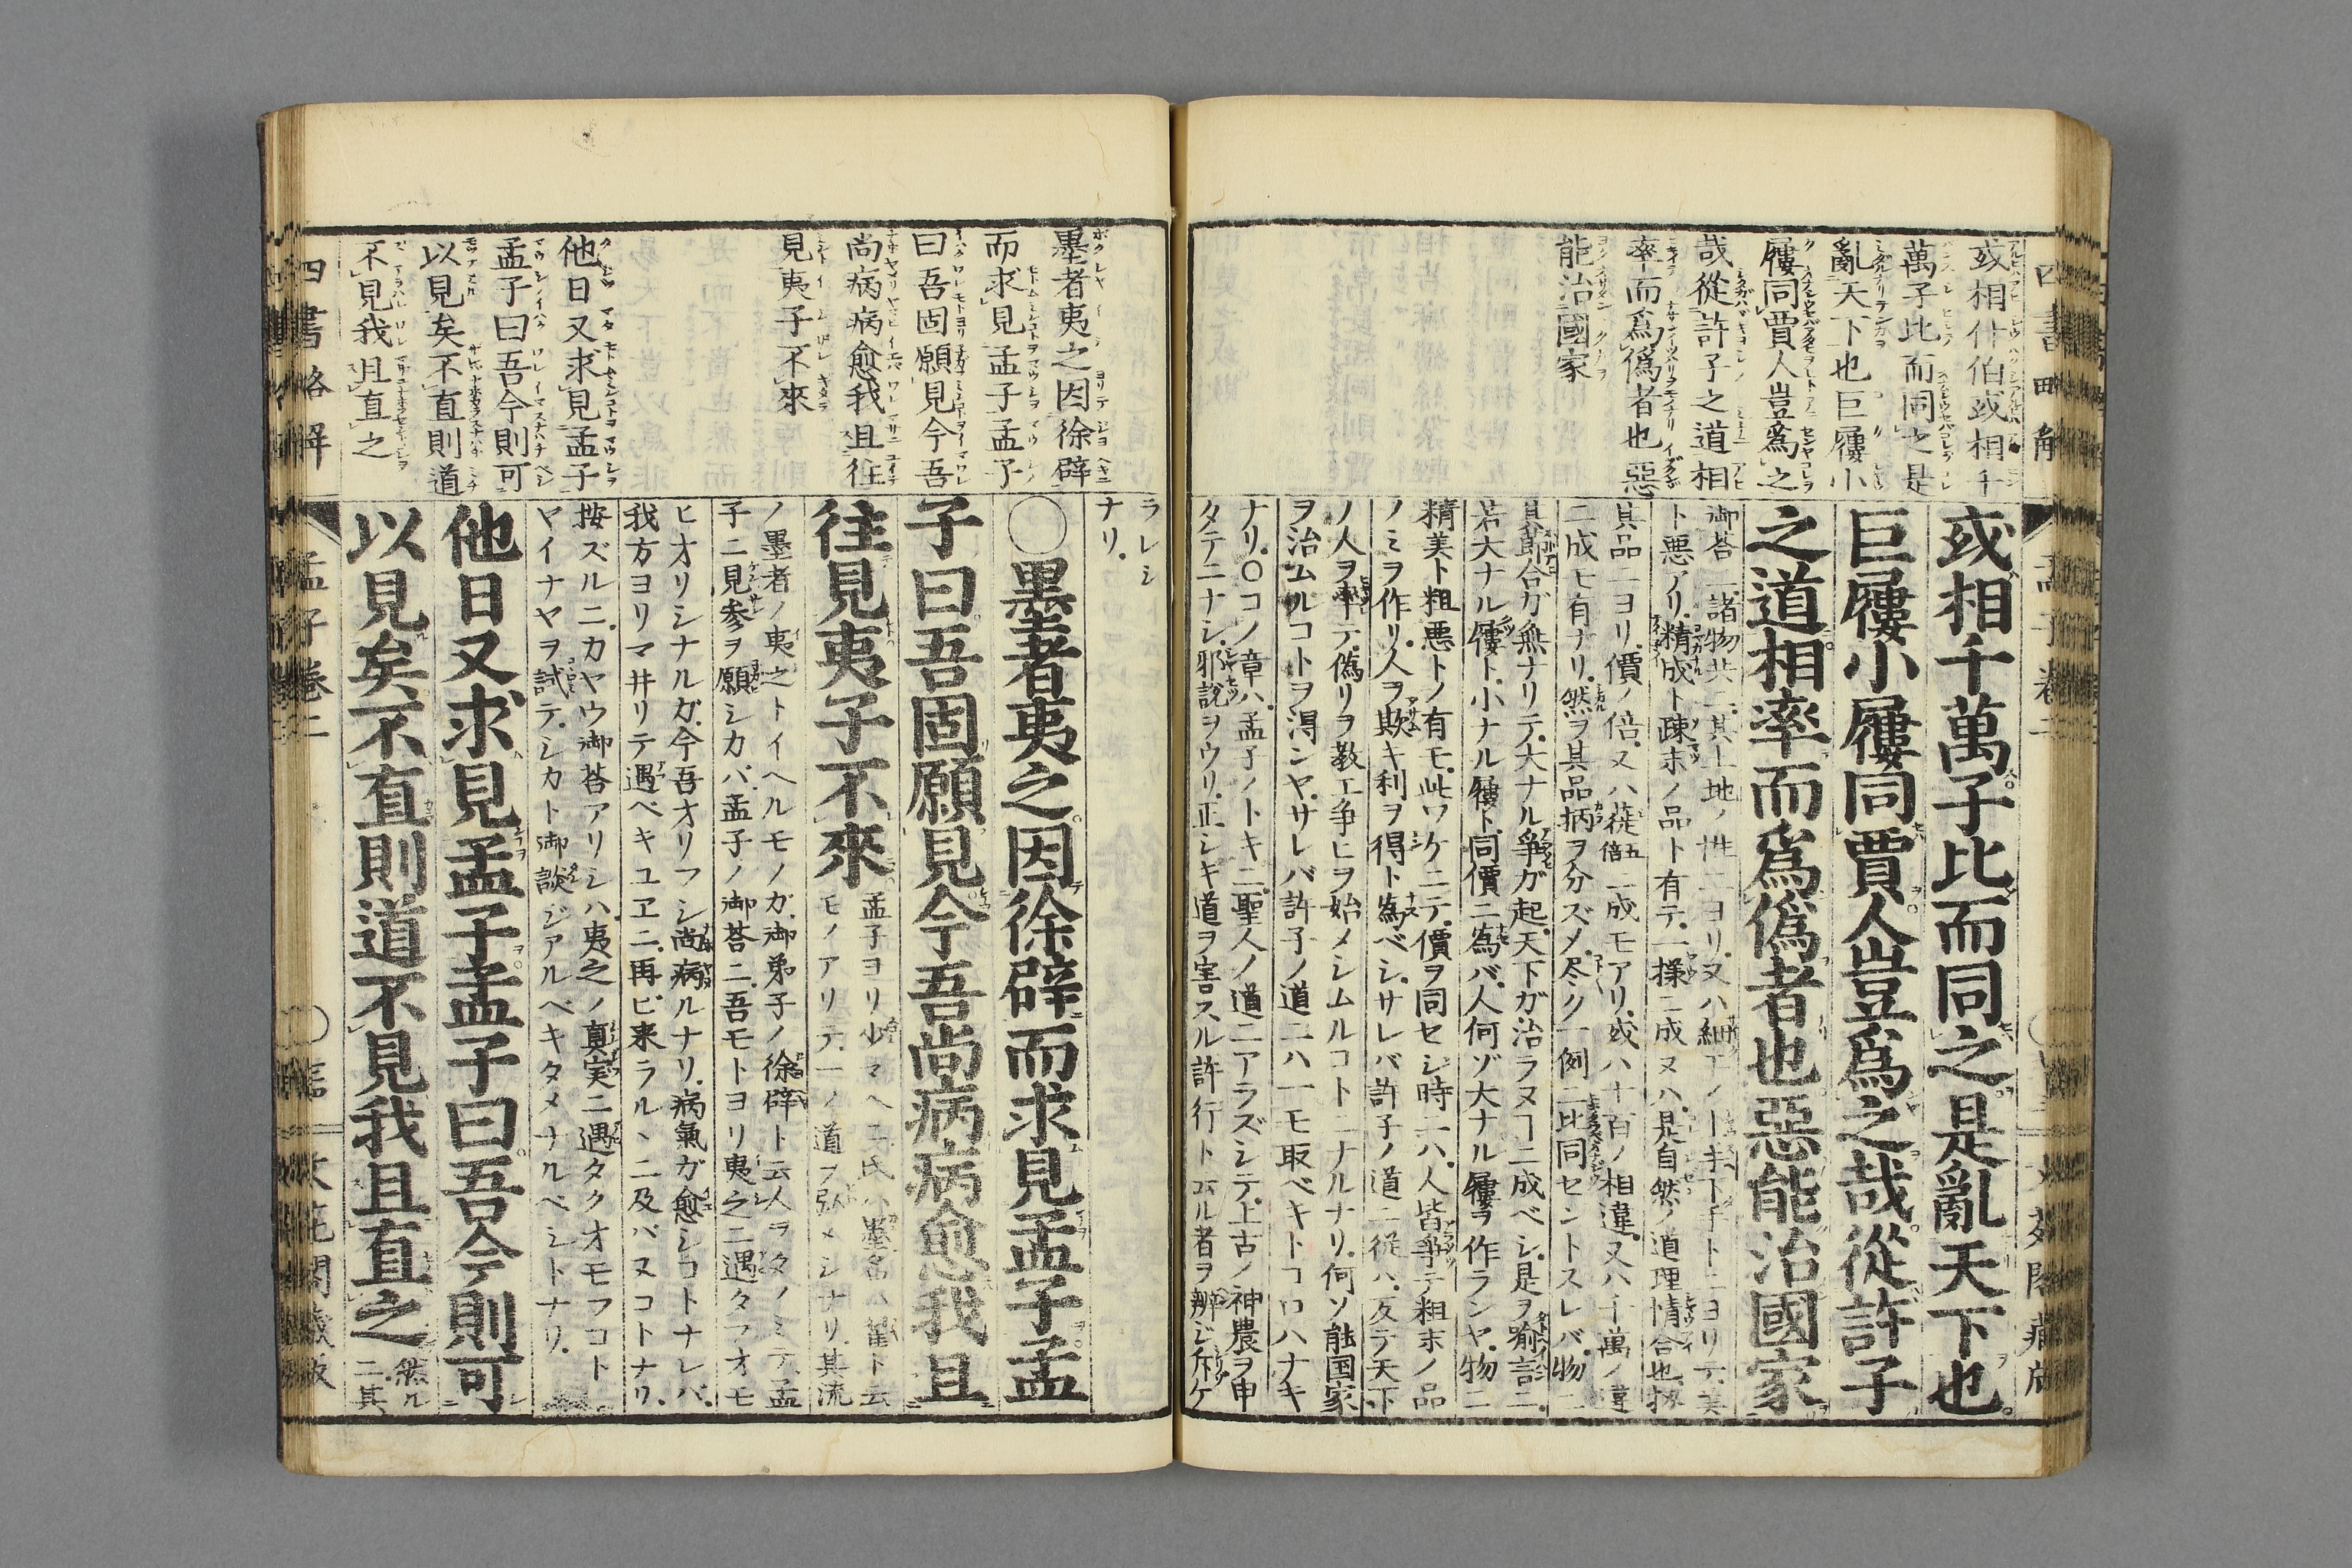 或相什伯或相千
萬子比而同之是
亂天下也巨屨小
屨同賈人豈爲之
哉從許子之道相
率而爲僞者也惡
能治國家
或相千萬子比而同之是亂天下也
巨屨小屨同賈人豈爲之哉從許子
之道相率而爲僞者也惡能治國家
ト悪アリ精成ト疎末ノ品ト有テ一様ニ成ヌハ是自然ノ道理情合也
其品ニヨリ價ノ倍又ハ蓰五倍ニ成モアリ或ハ十百ノ相違又ハ千萬ノ違
ニ成モ有ナリ然ヲ其品柄ヲ分ズメ尽ク一例ニ比同セントスレバ物ニ
其節合ガ無ナリテ大ナル爭ガ起天下ガ治ラヌヿニ成ベシ是ヲ喩言ニ
若大ナル屨ト小ナル屨ト同價ニ為バ人何ゾ大ナル屨ヲ作ランヤ物ニ
精美ト粗悪トノ有モ此ワケニテ價ヲ同セシ時ハ人皆爭テ粗末ノ品
ノミヲ作リ人ヲ欺キ利ヲ得ト為ベシサレバ許子ノ道ニ從ハ反テ天下
ノ人ヲ率テ偽リヲ教エ争ヒヲ始メシムルコトニナルナリ何ソ能国家
ヲ治ムルコトヲ得ンヤサレバ許子ノ道ニハ一モ取ベキトコロハナキ
ナリ○コノ章ハ孟子ノトキニ聖人ノ道ニアラズシテ上古ノ神農ヲ申
タテニナシ邪説ヲウリ正シキ道ヲ害スル許行ト云ル者ヲ辨ジ斥ケ
墨者夷之因徐辟
而求見孟子孟子
曰吾固願見今吾
尚病病愈我且往
見夷子不來
他日又求見孟子
孟子曰吾今則可
以見矣不直則道
不見我且直之
ラレシ
ナリ
○墨者夷之因徐辟而求見孟子孟
子曰吾固願見今吾尚病病愈我且
往見夷子不來
孟子ヨリ少マヘニ氏ハ墨名ハ翟ト云
モノアリテ一ノ道ヲ弘メシナリ其流
ノ墨者ノ夷之トイヘルモノガ御弟子ノ徐辟ト云人ヲタノミテ孟
子ニ見參ヲ願シカバ孟子ノ御荅ニ吾モトヨリ夷之ニ遇タフオモ
ヒオリシナルガ今吾オリフシ尚病ルナリ病氣ガ愈シコトナレバ
我方ヨリマ井リテ遇ベキユヱニ再ビ来ラルヽニ及バヌコトナリ
按ズルニカヤウ御荅アリシハ夷之ノ真実ニ遇タクオモフコト
ヤイナヤヲ試テシカト御談ジアルベキタメナルベシトナリ
他日又求見孟子孟子曰吾今則可
以見矣不直則道不見我且直之
然ル
ニ其
四書略解
孟子卷二